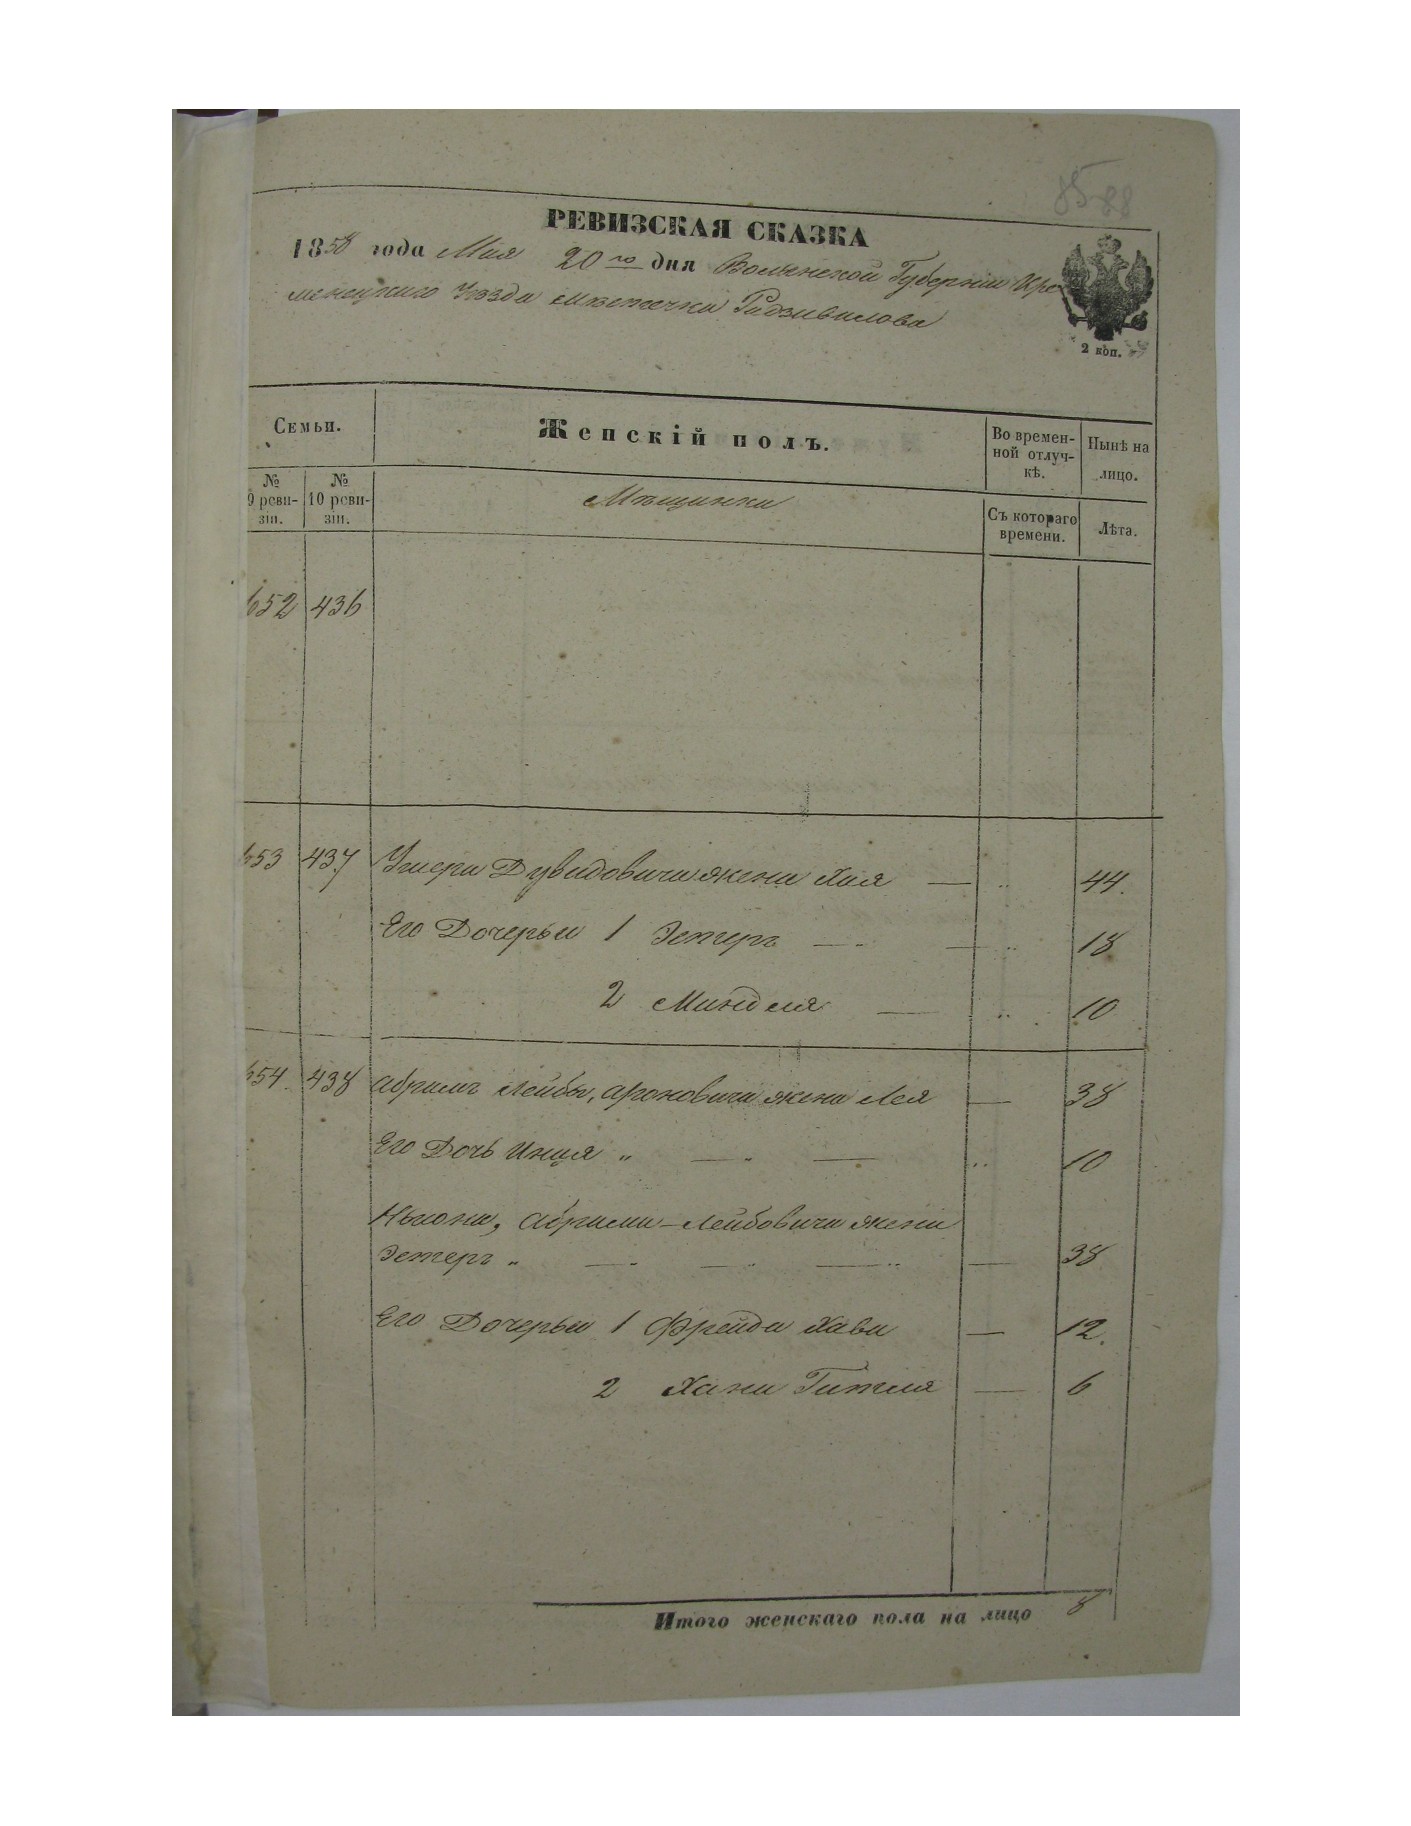 85 88
РЕВИЗСКАЯ СКАЗКА
1858 года Мая 20го дня Волынской Губернии Кре
менецкаго Уезда Местечка Радзивилова
2 коп.
Семьи.
Женскій полъ.
Во времен-
ной отлуч-
кѣ.
Нынѣ на
лицо.
№
9 реви-
зіи.
№
10 реви-
зіи.
Мѣщанки
Съ котораго
времени.
Лѣта.
652 436
653 437 Умера Дувидовича жена Хая 44.
Его Дочерьи 1 Эстеръ 18
2 Минделя 10
654. 438 Абрамъ Лейбы, Ароновича жена Лея 38
Его Дочь 10
Абрама-Лейбовича жена
Эстеръ 38
Его Дочерьи 1 Фрейда Хава 12.
2 Хана Гитля 6
Итого женскаго пола на лицо 8